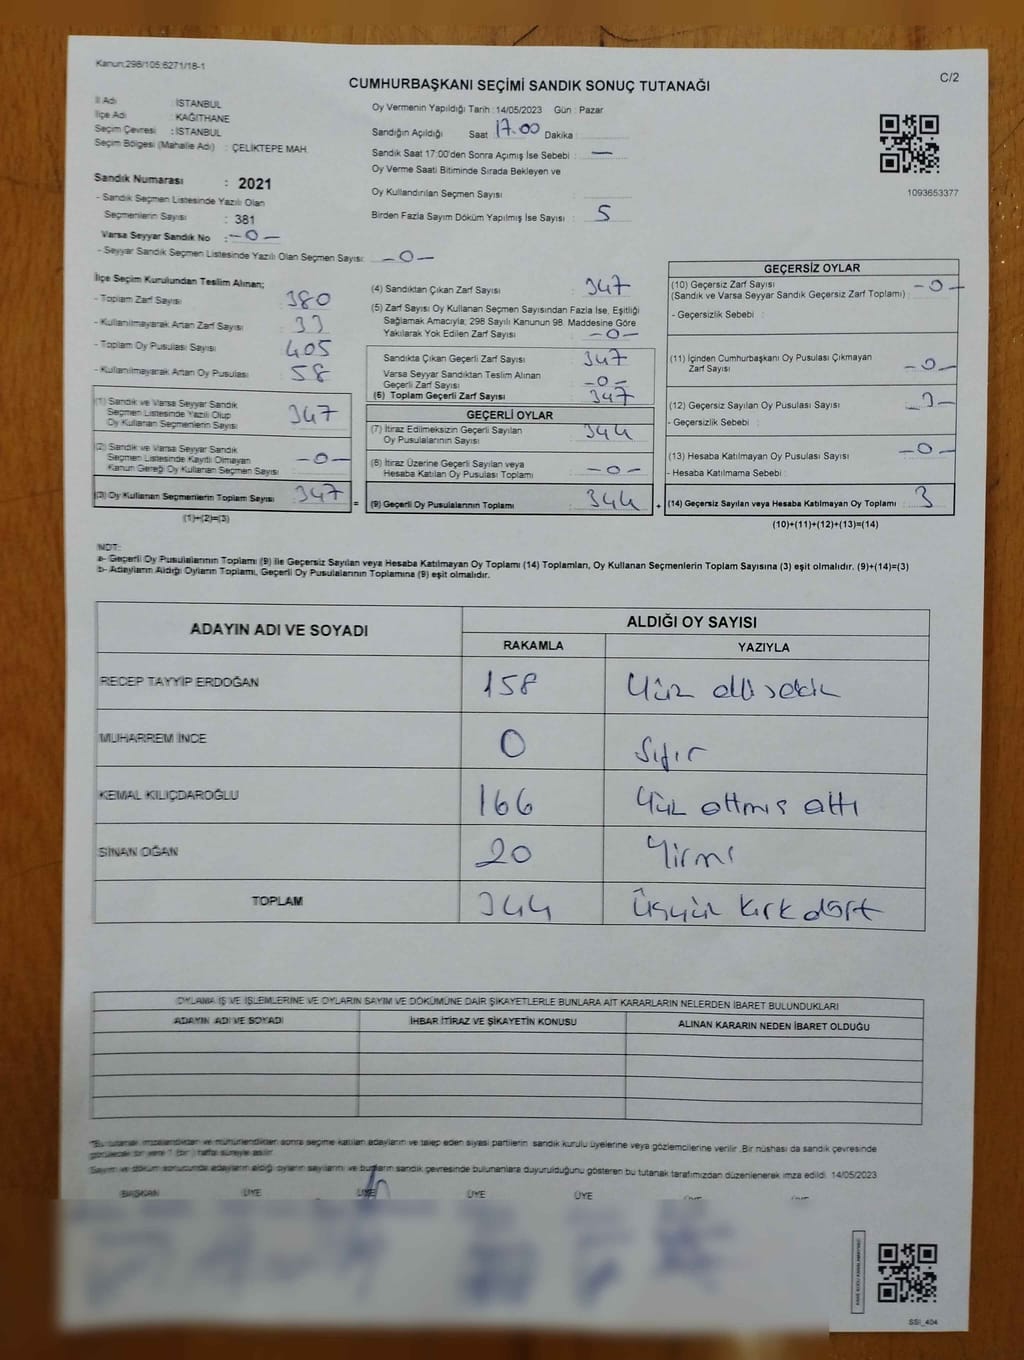 Kanun:298/105;6271/18-1
C/2
CUMHURBAŞKANI SEÇİMİ SANDIK SONUÇ TUTANAĞI
İl Adı : İSTANBUL
İlçe Adı : KAĞITHANE
Seçim Çevresi : İSTANBUL
Seçim Bölgesi (Mahalle Adı) : ÇELİKTEPE MAH.
Sandık Numarası : 2021
- Sandık Seçmen Listesinde Yazılı Olan
Seçmenlerin Sayısı : 381
Varsa Seyyar Sandık No : -0-
- Seyyar Sandık Seçmen Listesinde Yazılı Olan Seçmen Sayısı: -0-
Oy Vermenin Yapıldığı Tarih : 14/05/2023 Gün : Pazar
Sandığın Açıldığı Saat 17.00 Dakika :
Sandık Saat 17:00'den Sonra Açımış İse Sebebi : —
Oy Verme Saati Bitiminde Sırada Bekleyen ve
Oy Kullandırılan Seçmen Sayısı :
Birden Fazla Sayım Döküm Yapılmış İse Sayısı : 5
1093653377
İlçe Seçim Kurulundan Teslim Alınan;
- Toplam Zarf Sayısı : 380
- Kullanılmayarak Artan Zarf Sayısı : 33
- Toplam Oy Pusulası Sayısı : 405
- Kullanılmayarak Artan Oy Pusulası : 58
(1) Sandık ve Varsa Seyyar Sandık
Seçmen Listesinde Yazılı Olup
Oy Kullanan Seçmenlerin Sayısı : 347
(2) Sandık ve Varsa Seyyar Sandık
Seçmen Listesinde Kayıtlı Olmayan
Kanun Gereği Oy Kullanan Seçmen Sayısı : -0-
(3) Oy Kullanan Seçmenlerin Toplam Sayısı : 347 =
(1)+(2)=(3)
(4) Sandıktan Çıkan Zarf Sayısı : 347
(5) Zarf Sayısı Oy Kullanan Seçmen Sayısından Fazla İse, Eşitliği
Sağlamak Amacıyla, 298 Sayılı Kanunun 98. Maddesine Göre
Yakılarak Yok Edilen Zarf Sayısı : -0-
Sandıkta Çıkan Geçerli Zarf Sayısı : 347
Varsa Seyyar Sandıktan Teslim Alınan
Geçerli Zarf Sayısı : -0-
(6) Toplam Geçerli Zarf Sayısı : 347
GEÇERLİ OYLAR
(7) İtiraz Edilmeksizin Geçerli Sayılan
Oy Pusulalarının Sayısı : 344
(8) İtiraz Üzerine Geçerli Sayılan veya
Hesaba Katılan Oy Pusulası Toplamı : -0-
(9) Geçerli Oy Pusulalarının Toplamı : 344 +
GEÇERSİZ OYLAR
(10) Geçersiz Zarf Sayısı
(Sandık ve Varsa Seyyar Sandık Geçersiz Zarf Toplamı) : -0-
- Geçersizlik Sebebi :
(11) İçinden Cumhurbaşkanı Oy Pusulası Çıkmayan
Zarf Sayısı : -0-
(12) Geçersiz Sayılan Oy Pusulası Sayısı : -3-
- Geçersizlik Sebebi :
(13) Hesaba Katılmayan Oy Pusulası Sayısı : -0-
- Hesaba Katılmama Sebebi :
(14) Geçersiz Sayılan veya Hesaba Katılmayan Oy Toplamı : 3
(10)+(11)+(12)+(13)=(14)
NOT:
a- Geçerli Oy Pusulalarının Toplamı (9) ile Geçersiz Sayılan veya Hesaba Katılmayan Oy Toplamı (14) Toplamları, Oy Kullanan Seçmenlerin Toplam Sayısına (3) eşit olmalıdır. (9)+(14)=(3)
b- Adayların Aldığı Oyların Toplamı, Geçerli Oy Pusulalarının Toplamına (9) eşit olmalıdır.
ADAYIN ADI VE SOYADI
ALDIĞI OY SAYISI
RAKAMLA YAZIYLA
RECEP TAYYİP ERDOĞAN 158 Yüz elli sekiz
MUHARREM İNCE 0 Sıfır
KEMAL KILIÇDAROĞLU 166 Yüz altmış altı
SİNAN OĞAN 20 Yirmi
TOPLAM 344 Üçyüz kırk dört
OYLAMA İŞ VE İŞLEMLERİNE VE OYLARIN SAYIM VE DÖKÜMÜNE DAİR ŞİKAYETLERLE BUNLARA AİT KARARLARIN NELERDEN İBARET BULUNDUKLARI
ADAYIN ADI VE SOYADI İHBAR İTİRAZ VE ŞİKAYETİN KONUSU ALINAN KARARIN NEDEN İBARET OLDUĞU
"Bu tutanak imzalandıktan ve mühürlendikten sonra seçime katılan adayların ve talep eden siyasi partilerin sandık kurulu üyelerine veya gözlemcilerine verilir. Bir nüshası da sandık çevresinde
görülecek bir yere 1 (bir) hafta süreyle asılır.
Sayım ve döküm sonucunda adayların aldığı oyların sayılarını ve bunların sandık çevresinde bulunanlara duyurulduğunu gösteren bu tutanak tarafımızdan düzenlenerek imza edildi. 14/05/2023
BAŞKAN ÜYE ÜYE ÜYE ÜYE
SSI_404